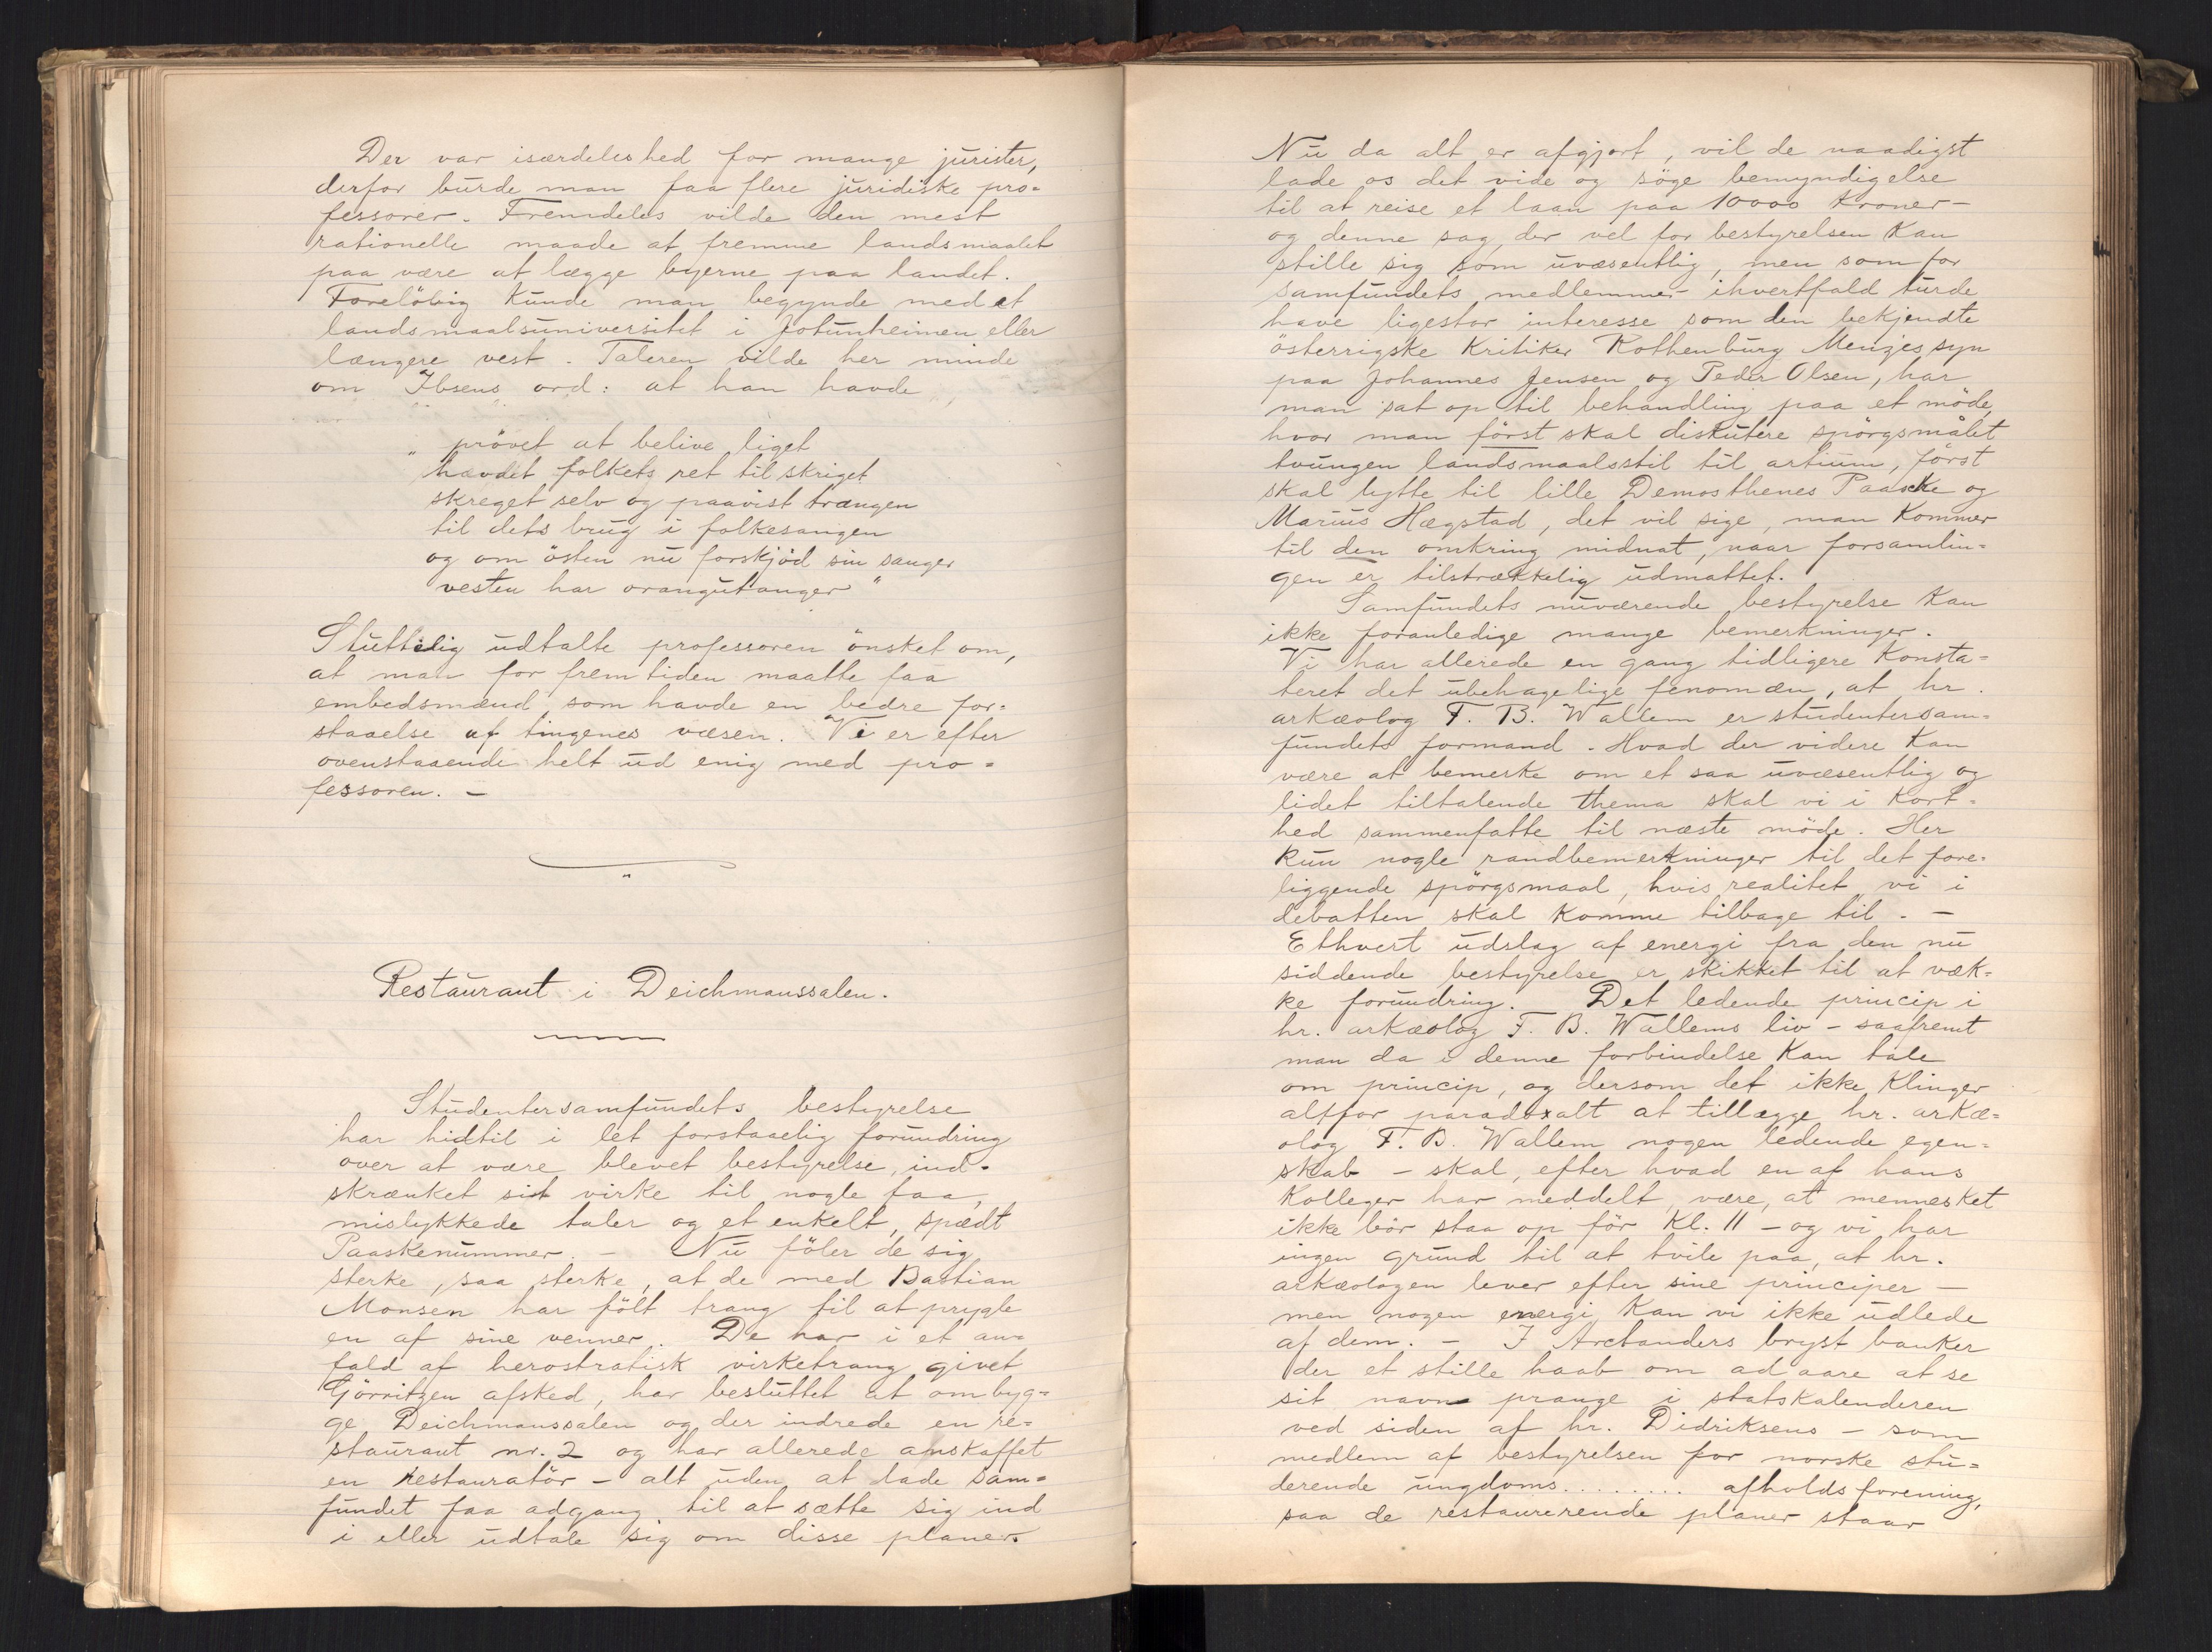 Der var isærdeleshed for mange jurister,
derfor burde man faa flere juridiske pro=
fessorer. Fremdeles vilde den mest
rationelle maade at fremme landsmaalet
paa være at lægge byerne paa landet.
Forelöbig kunde man begynde med et
landsmaalsuniversitet i Jotunheimen eller
længere vest. Taleren vilde her minde
om Ibsens ord: at han havde
„prövet at belive liget
hævdet folkets ret til skriget
skreget selv og paavist trangen
til dets brug i folkesangen
og om östen nu forskjöd sin sanger
vesten har orangutanger"
Sluttelig udtalte professoren önsket om,
at man for fremtiden maatte faa
embedsmænd som havde en bedre for=
staaelse af tingenes væsen. Vi er efter
ovenstaaende helt ud enig med pro=
fessoren. —
Restaurant i Deichmanssalen.
Studentersamfundets bestyrelse
har hidtil i let forstaaelig forundring
over at være blevet bestyrelse, ind=
skrænket sit virke til nogle faa,
mislykkede taler og et enkelt, spædt
Paaskenummer. — Nu föler de sig
sterke, saa sterke, at de med Bastian
Monsen har fölt trang til at prygle
en af sine venner. De har i et an=
fald af herostratisk virketrang givet
Görritzen afsked, har besluttet at ombyg=
ge Deichmanssalen og der indrede en re=
staurant nr. 2 og har allerede anskaffet
en restauratör — alt uden at lade sam=
fundet faa adgang til at sætte sig ind
i eller udtale sig om disse planer.
Nu da alt er afgjort, vil de naadigst
lade os det vide og söge bemyndigelse
til at reise et laan paa 10000 Kroner —
og denne sag, der vel for bestyrelsen kan
stille sig som uvæsentlig, men som for
samfundets medlemmer ihvertfald turde
have ligestor interesse som den bekjendte
österrigske kritiker Rothenburg Menzes syn
paa Johannes Jensen og Peder Olsen, har
man sat op til behandling paa et möde,
hvor man först skal diskutere spörgsmålet
tvungen landsmaalsstil til artium, först
skal lytte til lille Demosthenes Paaske og
Marius Hægstad, det vil sige, man kommer
til den omkring midnat, naar forsamlin=
gen er tilstrækkelig udmattet.
Samfundets nuværende bestyrelse kan
ikke foranledige mange bemerkninger.
Vi har allerede en gang tidligere konsta=
teret det ubehagelige fenomæn, at hr.
arkæolog F. B. Wallem er studentersam=
fundets formand. Hvad der videre kan
være at bemerke om et saa uvæsentlig og
lidet tiltalende thema skal vi i kort=
hed sammenfatte til næste möde. Her
kun nogle randbemerkninger til det fore=
liggende spörgsmaal, hvis realitet vi i
debatten skal komme tilbage til. —
Ethvert udslag af energi fra den nu
siddende bestyrelse er skikket til at væk=
ke forundring. Det ledende princip i
hr. arkæolog F. B. Wallems liv — saafremt
man da i denne forbindelse kan tale
om princip, og dersom det ikke klinger
altfor paradoxalt at tillægge hr. arkæ=
olog F. B. Wallem nogen ledende egen=
skab — skal, efter hvad en af hans
kolleger har meddelt, være, at mennesket
ikke bör staa op för Kl. 11 — og vi har
ingen grund til at tvile paa, at hr.
arkæologen lever efter sine principer —
men nogen energi kan vi ikke udlede
af dem. — I Arctanders bryst banker
der et stille haab om ad aare at se
sit navn prange i statskalenderen
ved siden af hr. Didriksens — som
medlem af bestyrelsen for norske stu=
derende ungdoms........ afholdsforening,
saa de restaurerende planer staar